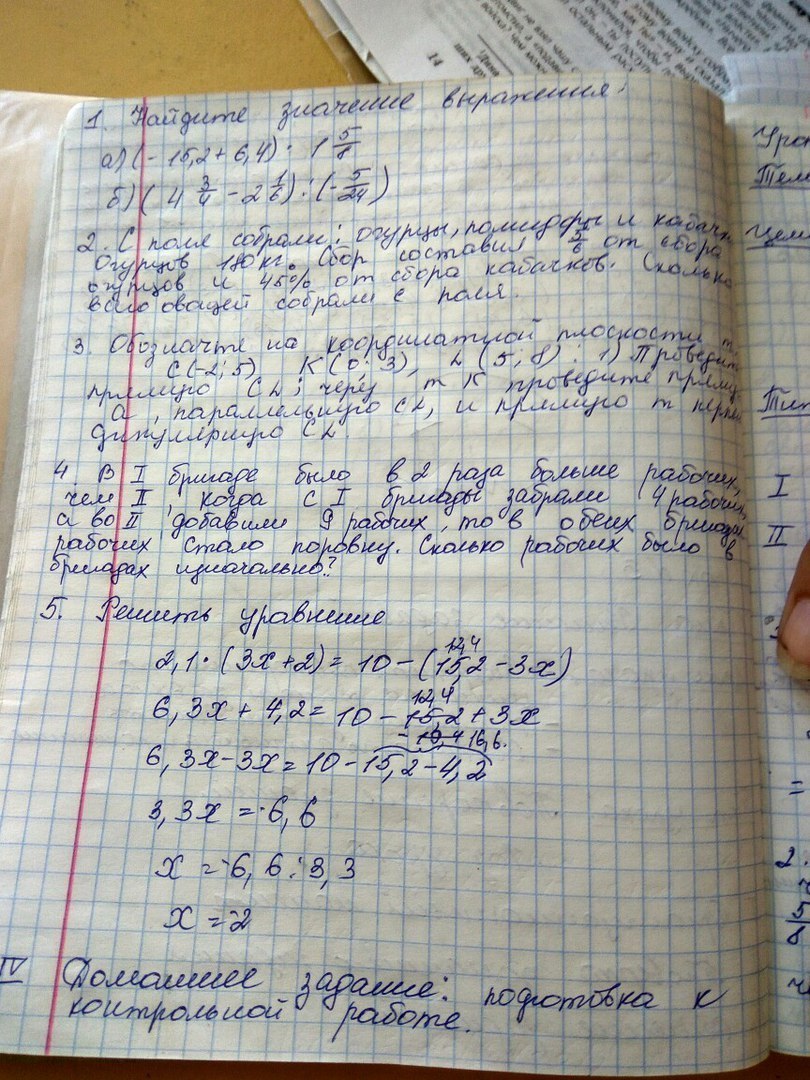 14
1. Найдите значение выражения:
а) (- 15,2 + 6,4) : 1 5/8
б) ( 4 3/4 - 2 1/6) : (- 5/24)
2. С поля собрали: огурцы, помидоры и кабачк
Огурцов 180 кг. Сбор составил 5/6 от сбора
огурцов и 45% от сбора кабачков. Сколько
всего овощей собрали с поля.
3. Обозначте на координатной плоскости т.
C (-2; 5) K (0; 3), L (5; 8) : 1) Проведит
прямую CL; через т K проведите пряму
a, параллельную CL, и прямую m перпен
дикулярную CL.
4. В I бригаде было в 2 раза больше рабочих,
чем II, когда с I бригады забрали 14 рабочих,
а во II добавили 9 рабочих, то в обеих бригадах
рабочих стало поровну. Сколько рабочих было в
бригадах изначально?
5. Решить уравнение
12,4
2,1 · (3x + 2) = 10 - (15,2 - 3x)
12,4
6,3x + 4,2 = 10 - 15,2 + 3x
16,6.
6,3x - 3x = 10 - 15,2 - 4,2
3,3x = -6,6
x = -6,6 : 3,3
x = -2
IV Домашнее задание: подготовка к
контрольной работе.
Уро
Тем
Цел
I
II
=
2.